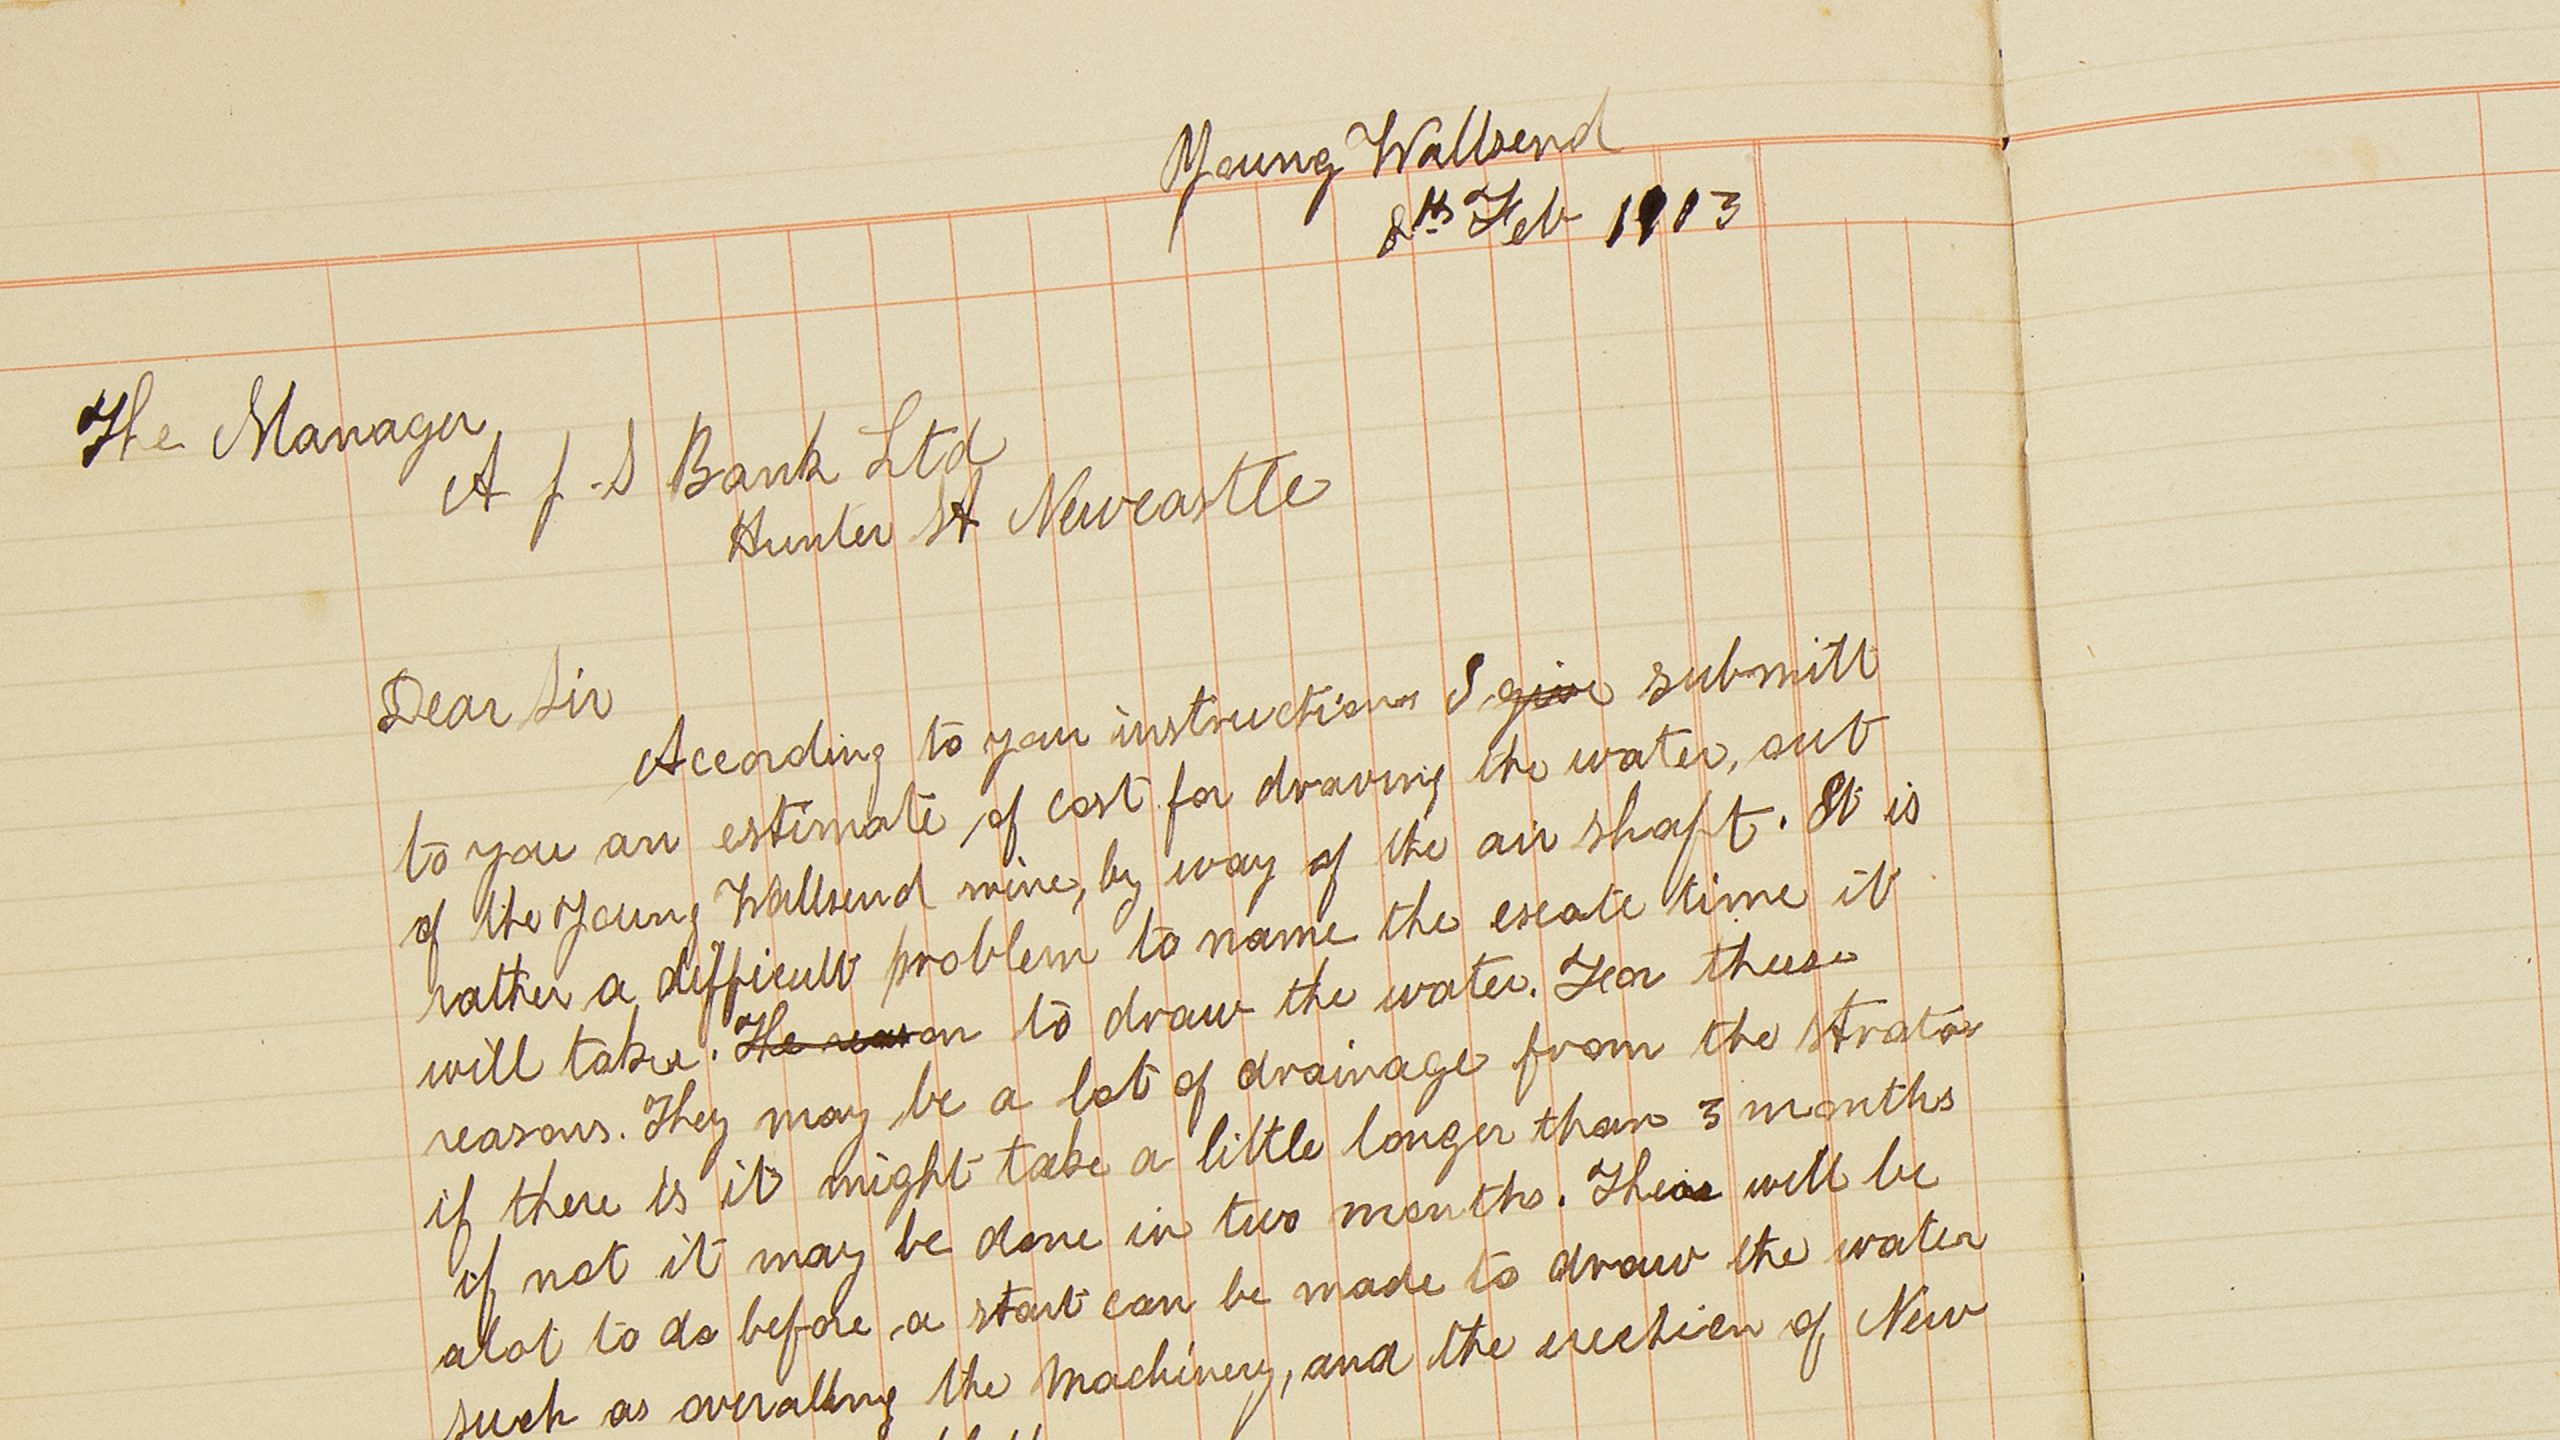 Young Wallsend
8th Feb 1903
The Manager
A J S Bank Ltd
Hunter St Newcastle
Dear Sir
According to you instructions I give submitt
to you an estimate of cost for drawing the water, out
of the Young Wallsend mine, by way of the air shaft. It is
rather a difficult problem to name the excate time it
will take. The reason to draw the water. For these
reasons. They may be a lot of drainage from the stratas
if there is it might take a little longer than 3 months
if not it may be done in two months. will be
alot to do before a start can be made to draw the water
such as overalling the Machinery, and the erection of New